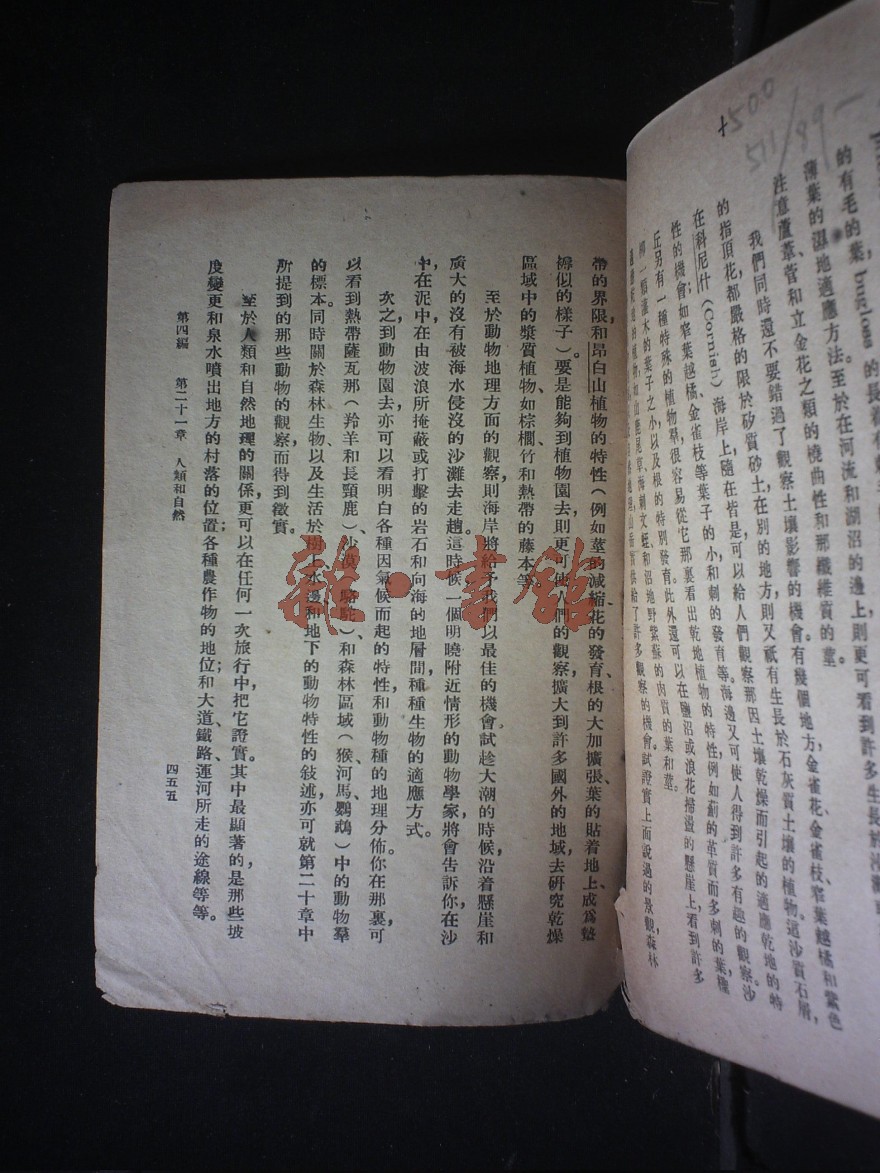 +500
511/89-
的有毛的葉,
薄葉的濕地適應方法。至於在河流和湖沼的邊上則更可看到許多生長於
注意蘆葦菅和立金花之類的撓曲性和那纖維質的莖。
我們同時還不要錯過了觀察土壤影響的機會。有幾個地方,金雀花、金雀枝、窄葉越橘和紫色
的指頂花,都嚴格的限於矽質砂土在別的地方,則又祇有生長於石灰質土壤的植物。這沙質石屑,
在科尼什(Cornish)海岸上,隨在皆是,可以給人們觀察那因土壤乾燥而引起的適應乾地的特
性的機會;如窄葉越橘、金雀枝等葉子的小和刺的發育等。海邊又可使人得到許多有趣的觀察沙
丘另有一種特殊的植物羣,很容易從它那裏看出乾地植物的特性,例如薊的革質而多刺的葉,種
柳一類灌木的葉子之小,以及根的特別發育。此外還可以在鹽沼或浪花掃盪的懸崖上,看到許多
植物,如山鹿尾草、海刺文蛭、和沼地野紫蘇的肉質的葉和莖。
供給了許多觀察的機會。試證實上面說過的景觀,森林
帶的界限,和昂白山植物的特性(例如莖的減縮,花的發育,根的大加擴張,葉的貼着地上成爲墊
褥似的樣子)。要是能夠到植物園去,則更可使人們的觀察擴大到許多國外的地域,去研究乾燥
區域中的漿質植物,如棕櫚、竹和熱帶的藤本等。
至於動物地理方面的觀察,則海岸將給予我們以最佳的機會,試趁大潮的時候,沿着懸崖和
廣大的沒有被海水侵沒的沙灘去走趟。這時候,一個明曉附近情形的動物學家,將會告訴你,在沙
中,在泥中,在由波浪所掩蔽或打擊的岩石和向海的地層間,種種生物的適應方式。
次之,到動物園去,亦可以看明白各種因氣候而起的特性和動物種的地理分佈。你在那裏可
以看到熱帶薩瓦那(羚羊和長頸鹿)、沙漠(駱駝)、和森林區域(猴、河馬、鸚鵡)中的動物羣
的標本。同時關於森林生物,以及生活於樹上、水邊和地下的動物特性的敍述,亦可就第二十章中
所提到的那些動物的觀察而得到徵實。
至於人類和自然地理的關係,更可以在任何一次旅行中,把它證實。其中最顯著的是那些坡
度變更和泉水噴出地方的村落的位置;各種農作物的地位;和大道、鐵路、運河所走的途線等等。
第四編 第二十一章 人類和自然
四五五
雜·書館